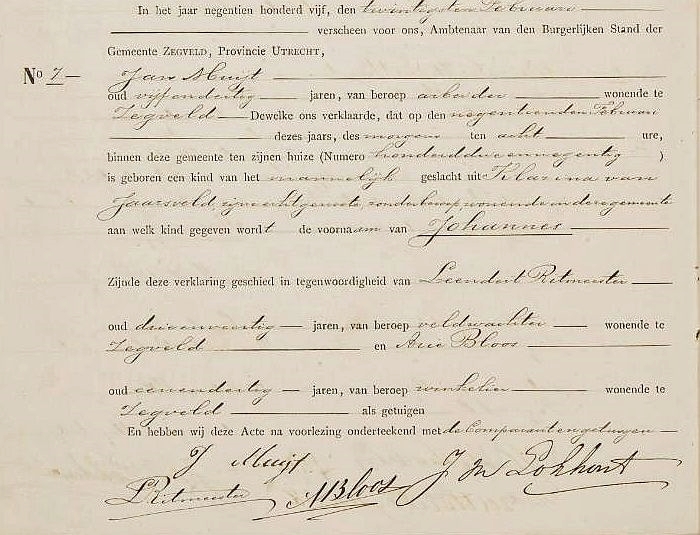 In het jaar negentien honderd vijf, den twintigsten Februari
verscheen voor ons, Ambtenaar van den Burgerlijken Stand der
Gemeente ZEGVELD, Provincie UTRECHT,
No 7
Jan Muijt
oud vijfendertig jaren, van beroep arbeider wonende te
Zegveld Dewelke ons verklaarde, dat op den negentienden Februari
dezes jaars, des morgens ten acht ure,
binnen deze gemeente ten zijnen huize (Numero honderd drieennegentig )
is geboren een kind van het mannelijk geslacht uit Klazina van
Jaarsveld zijne echtgenoote, zonder beroep, wonende in deze gemeente
aan welk kind gegeven wordt de voornaam van Johannes
Zijnde deze verklaring geschied in tegenwoordigheid van Leendert Ritmeester
oud drieenveertig jaren, van beroep veldwachter wonende te
Zegveld en Arie Bloos
oud eenendertig jaren, van beroep winkelier wonende te
Zegveld als getuigen
En hebben wij deze Acte na voorlezing onderteekend met de Comparant en getuigen
J Muijt
LRitmeester ABloos J M Lokhorst